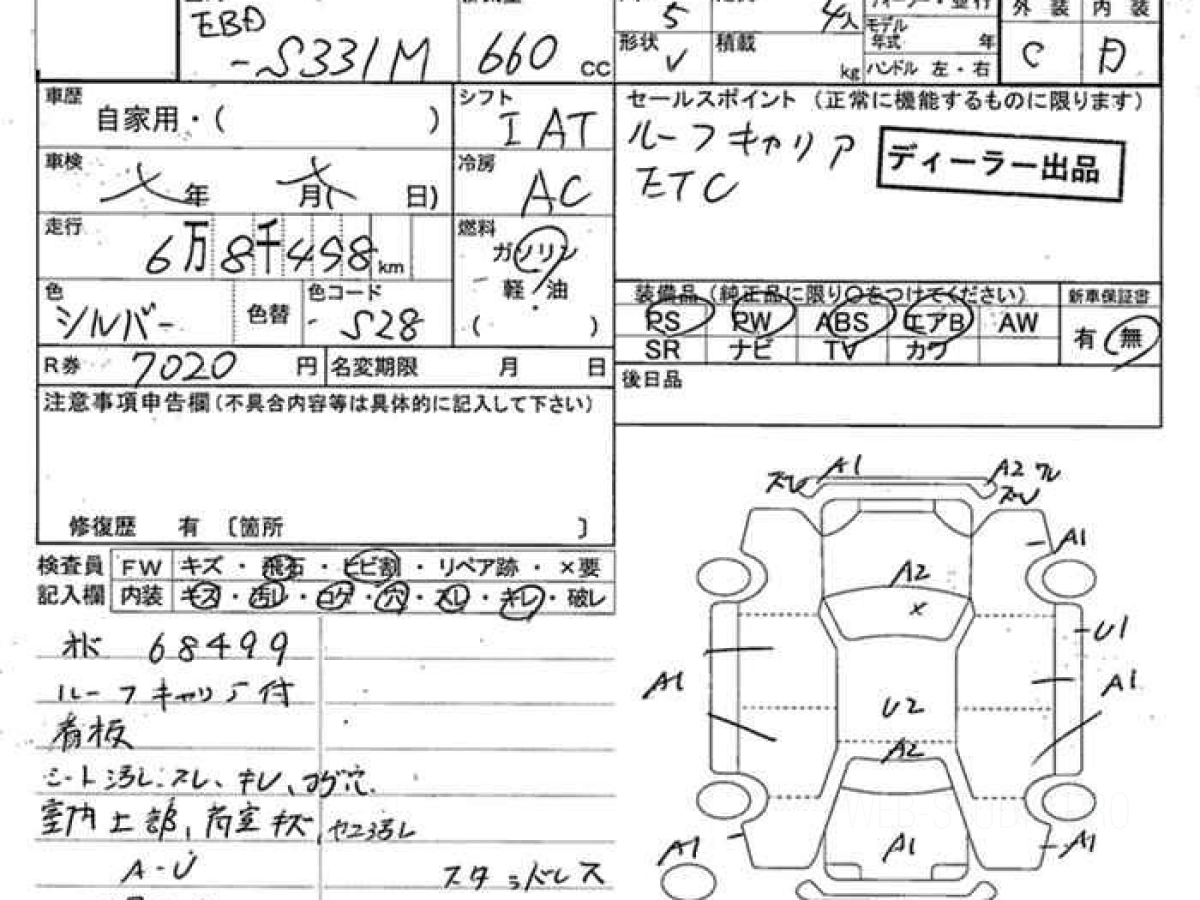 EBD
-S331M
660 cc
5
形状 V
積載 kg
4人
モデル年式 年
ハンドル 左・右
外装 内装
C D
車歴
自家用・( )
シフト
I AT
車検
年 月( 日)
冷房
AC
走行
6万8千498km
燃料
ガソリン
軽 油
( )
色
シルバー
色替
色コード
- S28
R券 7020 円
名変期限 月 日
セールスポイント (正常に機能するものに限ります)
ルーフキャリア
ETC
ディーラー出品
装備品 (純正品に限り○をつけてください)
新車保証書
PS PW ABS エアB AW
SR ナビ TV カワ
有 無
後日品
注意事項申告欄(不具合内容等は具体的に記入して下さい)
修復歴 有 〔箇所 〕
検査員記入欄
FW キズ・飛石・ヒビ割・リペア跡・×要
内装 キズ・汚レ・コゲ・穴・スレ・キレ・破レ
オド 68499
ルーフキャリア付
看板
シート汚レ.スレ、キレ、コゲ穴.
室内上部, 荷室キズ, ヤニ汚レ
A-U
スタッドレス
ズレ A1
A2 ワレ
ズレ
A1
A2
×
U1
A1
A1
U2
A2
A1
A1
A1